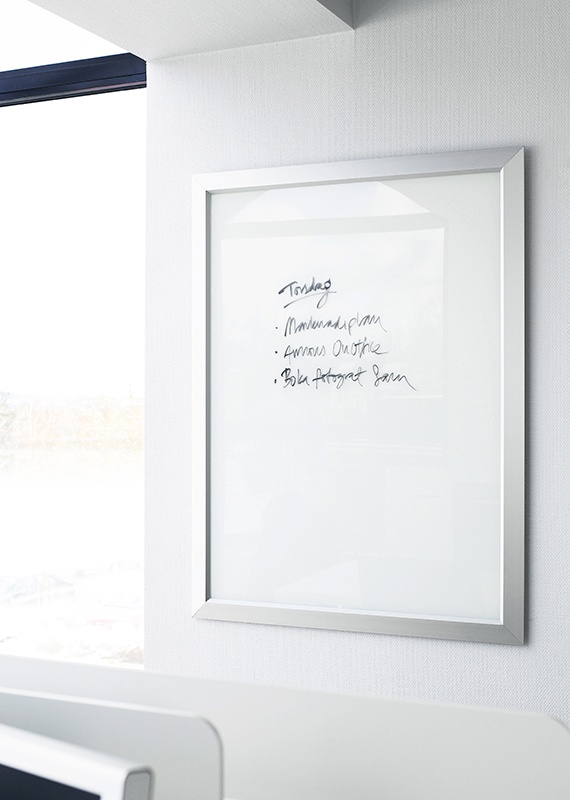 Torsdag
• Marknadsplan
• Annons OnOffice
• Boka fotograf